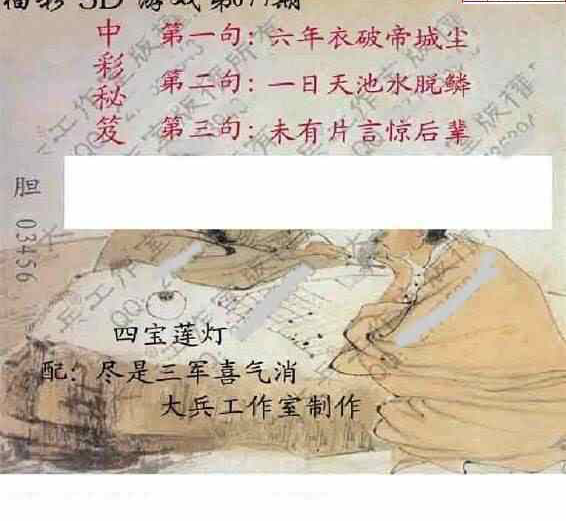 福彩 3D 游戏第077期
中彩秘笈
第一句：六年衣破帝城尘
第二句：一日天池水脱鳞
第三句：未有片言惊后辈
胆 03456
四宝莲灯
配：尽是三军喜气消
大兵工作室制作